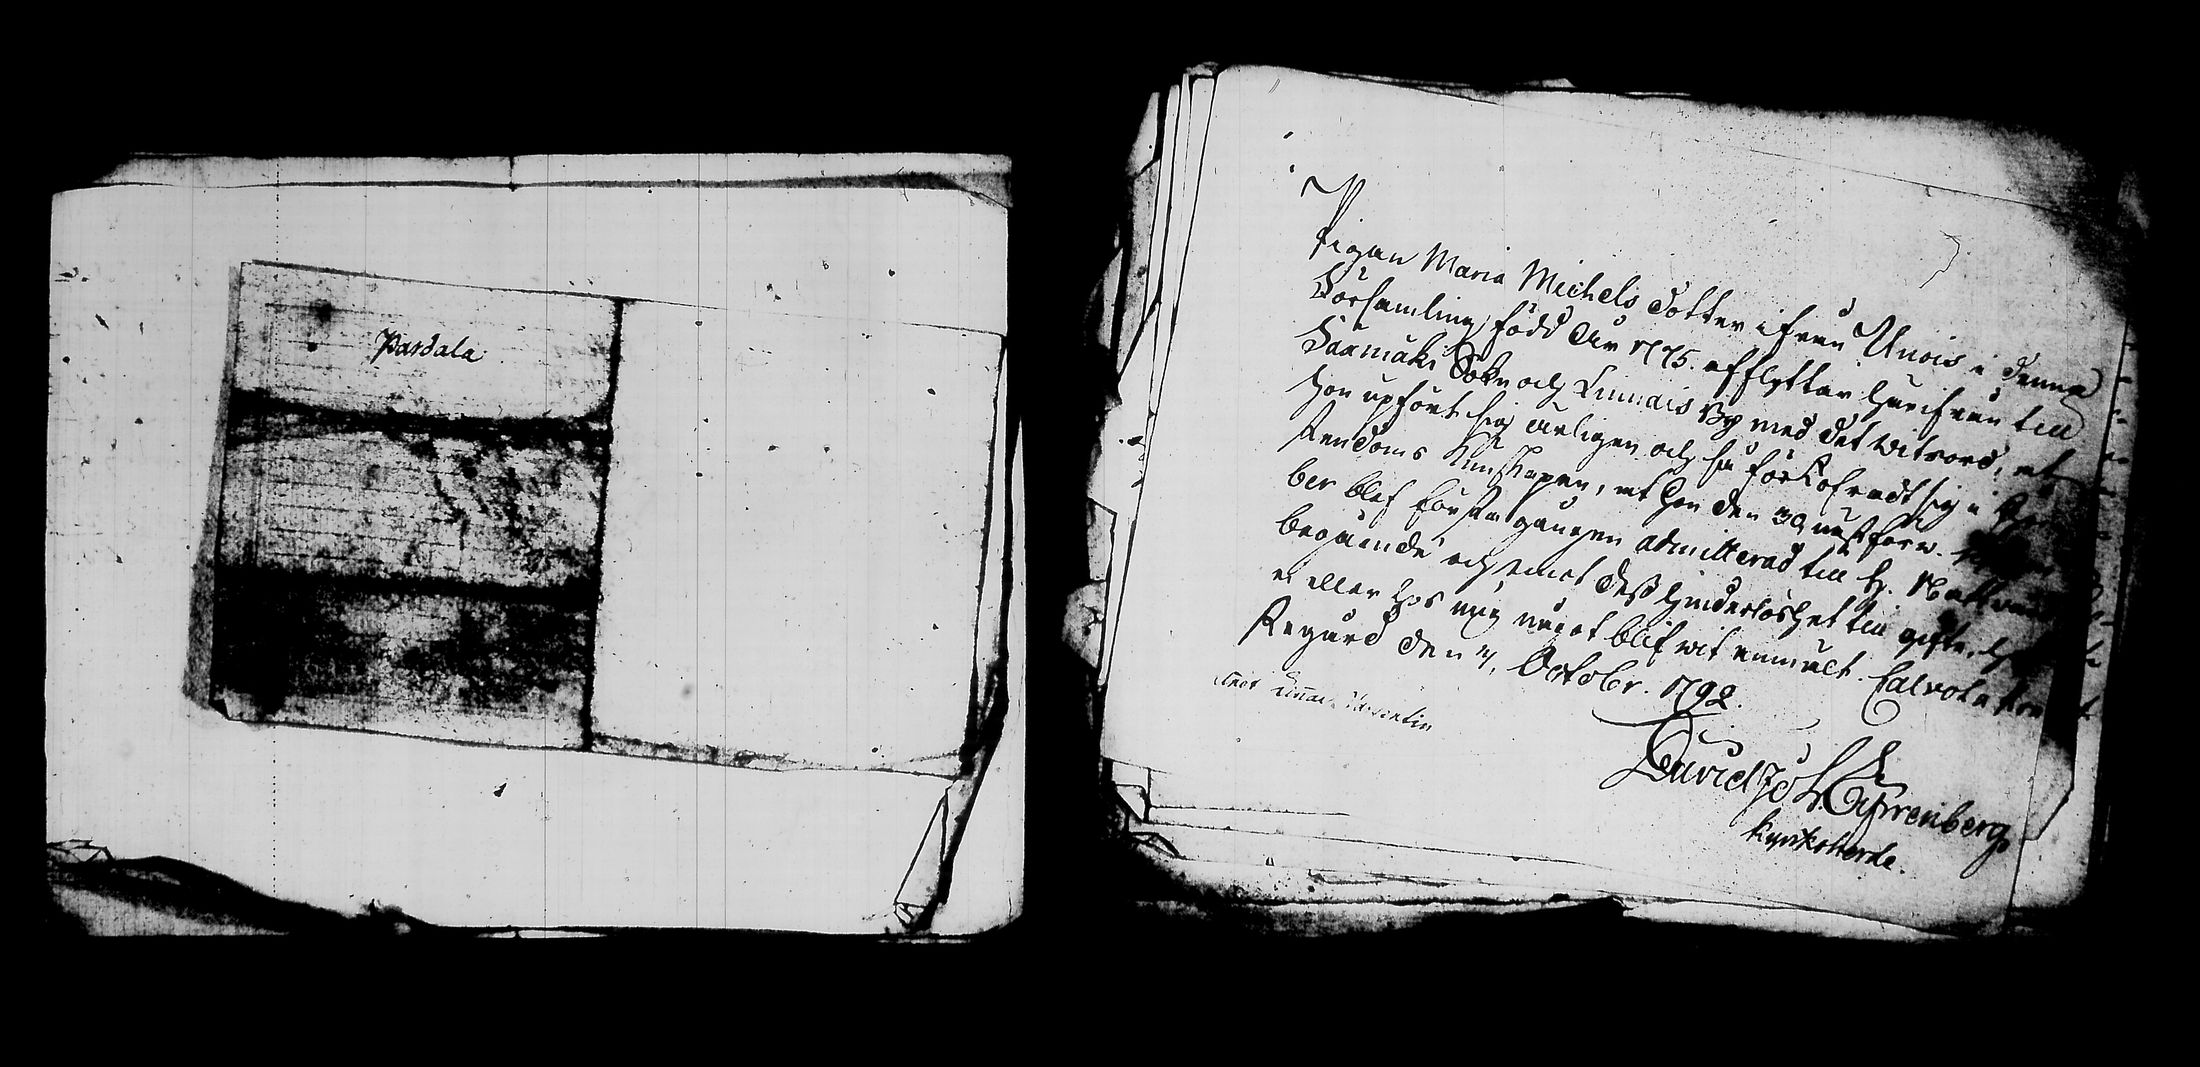 Pardala
Pigan Maria Michels dotter ifrån Unois i denna
Församling, född År 1775. afflyttar härifrån till
Saxmäki Sokn och Linnais By med det witsord, at
hon upfört sig ärligen och så förkofradt sig i
stendoms Kunskapen, at hon den 30 nästförw.
ber blef första gången admitterad till H. Nattward
begående och emot dess hinderlöshet till gifte,
ei eller hos mig något blifwit anmält. Calvola
Prägård den 4. Octobr. 1792.
David Joh. Cyrenberg
Kyrkoherde.